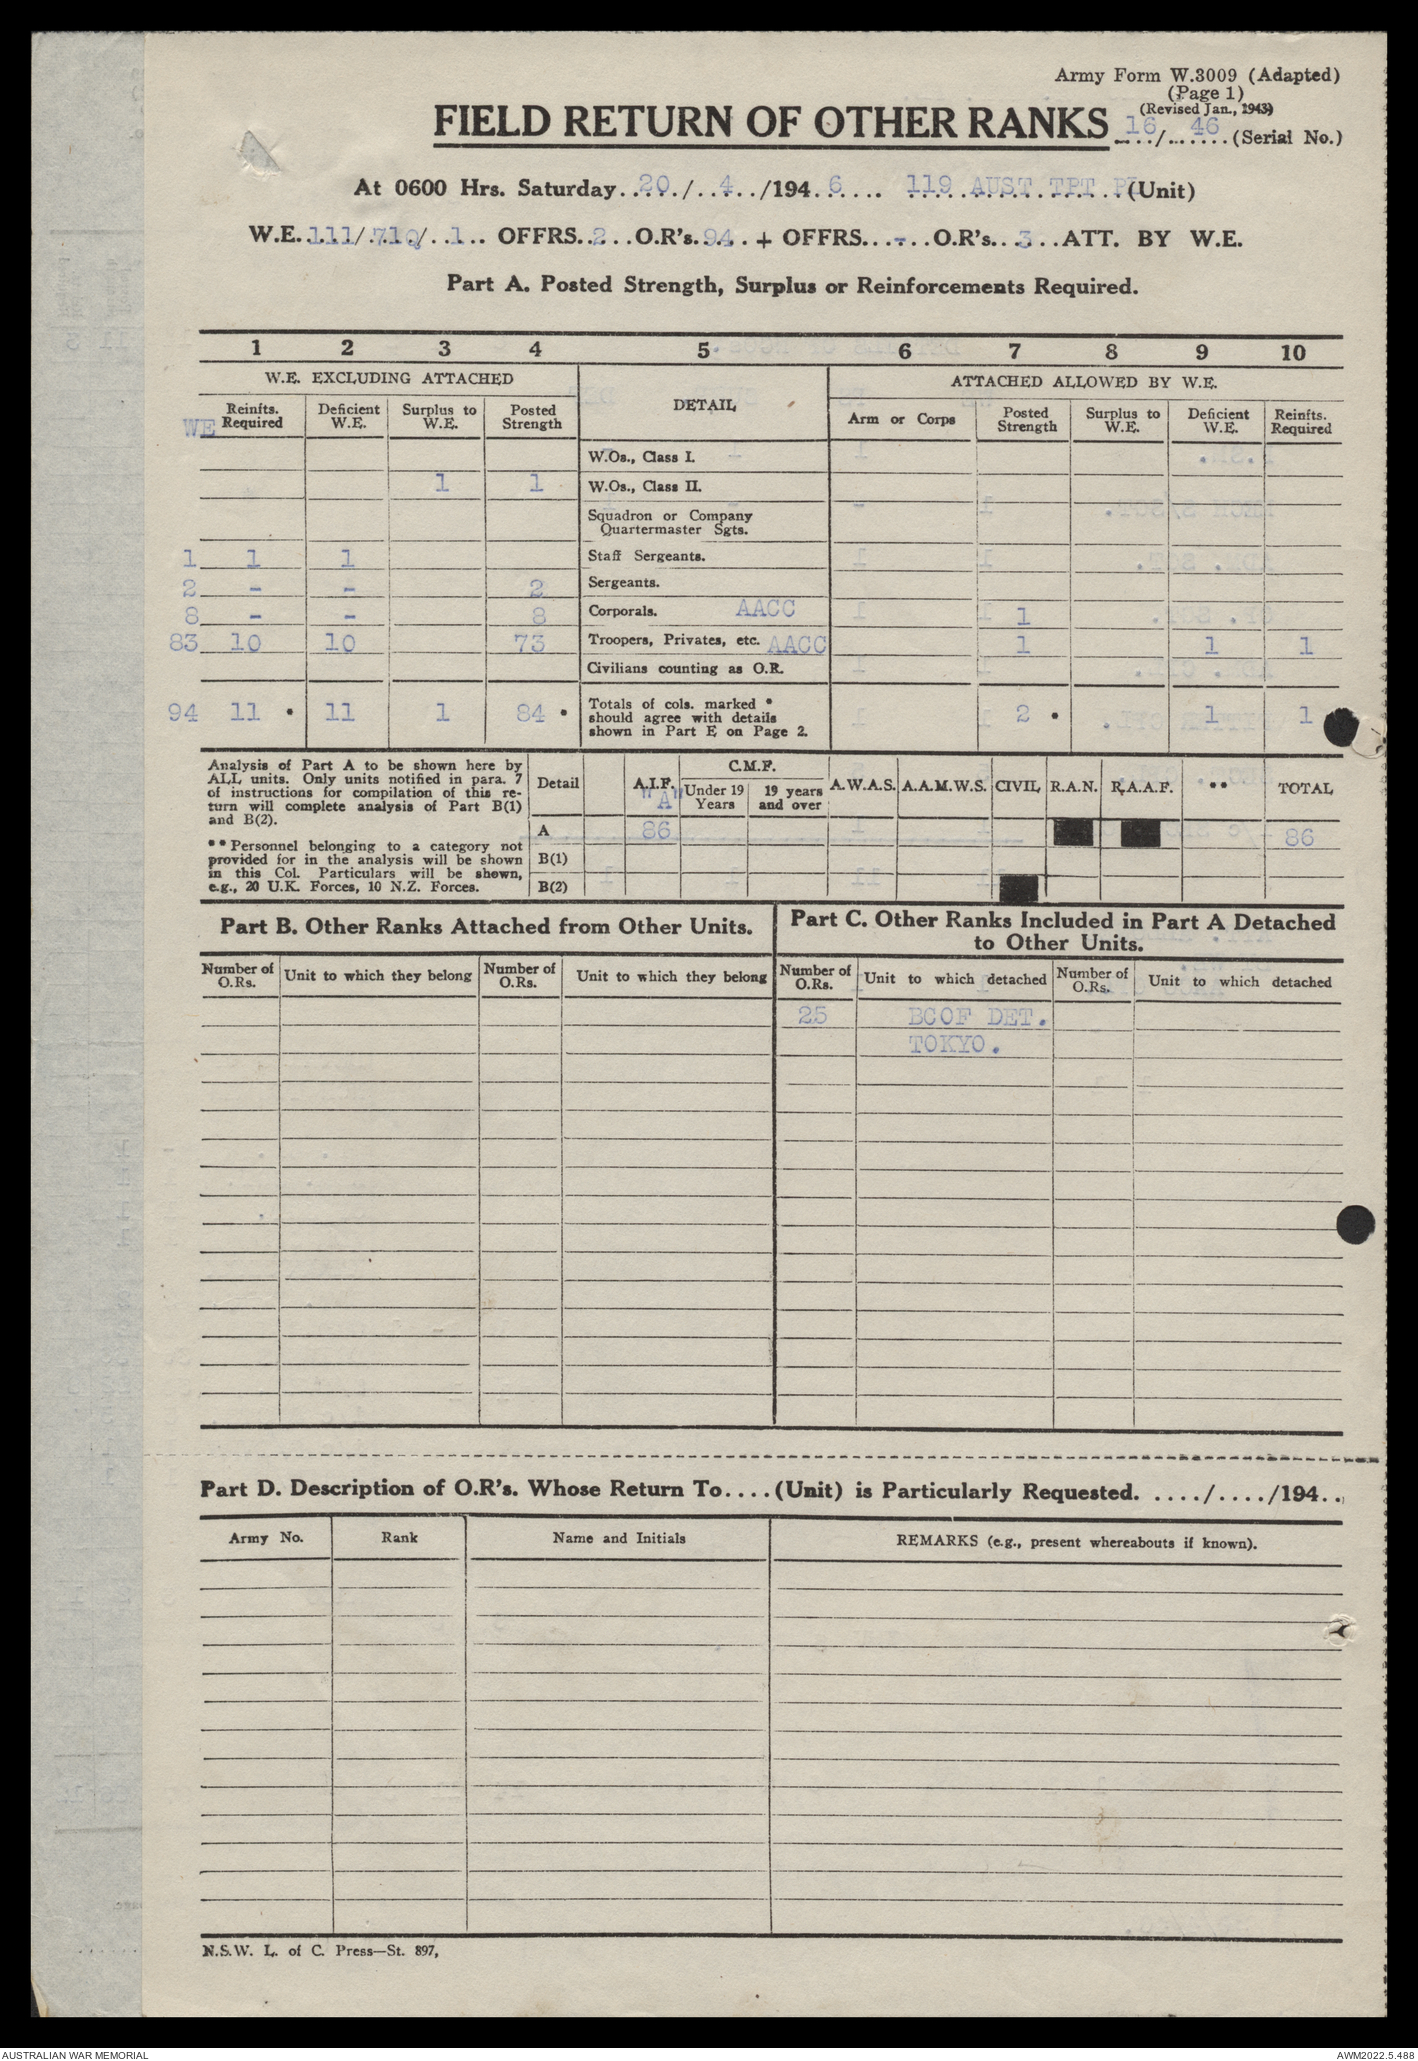 Army Form W.3009 (Adapted)
(Page 1)
(Revised Jan., 1943)
FIELD RETURN OF OTHER RANKS 16/ 46 (Serial No.)
At 0600 Hrs. Saturday 20/ 4 /194 6 119 AUST TPT PL (Unit)
W.E. 111/ 71Q/ 1 OFFRS. 2 O.R's. 94 + OFFRS. - O.R's. 3 ATT. BY W.E.
Part A. Posted Strength, Surplus or Reinforcements Required.
1 2 3 4 5 6 7 8 9 10
W.E. EXCLUDING ATTACHED DETAIL ATTACHED ALLOWED BY W.E.
WE Reinfts. Required Deficient W.E. Surplus to W.E. Posted Strength Arm or Corps Posted Strength Surplus to W.E. Deficient W.E. Reinfts. Required
W.Os., Class I.
1 1 W.Os., Class II.
Squadron or Company
Quartermaster Sgts.
1 1 1 Staff Sergeants.
2 - - 2 Sergeants.
8 - - 8 Corporals. AACC 1
83 10 10 73 Troopers, Privates, etc. AACC 1 1 1
Civilians counting as O.R.
94 11 • 11 1 84 • Totals of cols. marked * 2 • 1 1
should agree with details
shown in Part E on Page 2.
Analysis of Part A to be shown here by
ALL units. Only units notified in para. 7
of instructions for compilation of this re-
turn will complete analysis of Part B(1)
and B(2).
** Personnel belonging to a category not
provided for in the analysis will be shown
in this Col. Particulars will be shown,
e.g., 20 U.K. Forces, 10 N.Z. Forces.
Detail A.I.F. "A" C.M.F. Under 19 Years 19 years and over A.W.A.S. A.A.M.W.S. CIVIL R.A.N. R.A.A.F. ** TOTAL
A 86 86
B(1)
B(2)
Part B. Other Ranks Attached from Other Units.
Part C. Other Ranks Included in Part A Detached
to Other Units.
Number of O.Rs. Unit to which they belong Number of O.Rs. Unit to which they belong Number of O.Rs. Unit to which detached Number of O.Rs. Unit to which detached
25 BCOF DET.
TOKYO.
Part D. Description of O.R's. Whose Return To....(Unit) is Particularly Requested. ..../..../194..
Army No. Rank Name and Initials REMARKS (e.g., present whereabouts if known).
N.S.W. L. of C. Press—St. 897,
AUSTRALIAN WAR MEMORIAL AWM2022.5.488